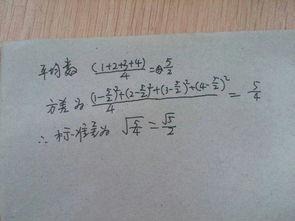 平均数 (1+2+3+4)/4 = 5/2
方差为 ((1-5/2)²+(2-5/2)²+(3-5/2)²+(4-5/2)²)/4 = 5/4
∴ 标准差为 √(5/4) = √5/2